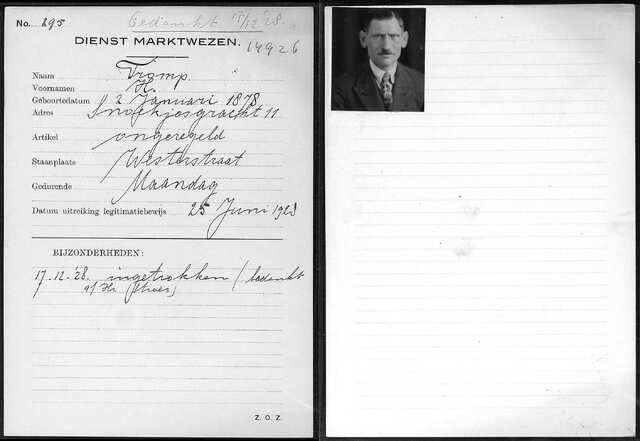 No. 295 Gedankt 15/12 '28.
DIENST MARKTWEZEN. 14926
Naam Tromp
Voornamen H.
Geboortedatum 2 Januari 1878
Adres Snoekjesgracht 11
Artikel ongeregeld
Staanplaats Westerstraat
Gedurende Maandag
Datum uitreiking legitimatiebewijs 25 Juni 1928
BIJZONDERHEDEN:
17.12.'28. ingetrokken / bedankt
Z. O. Z.